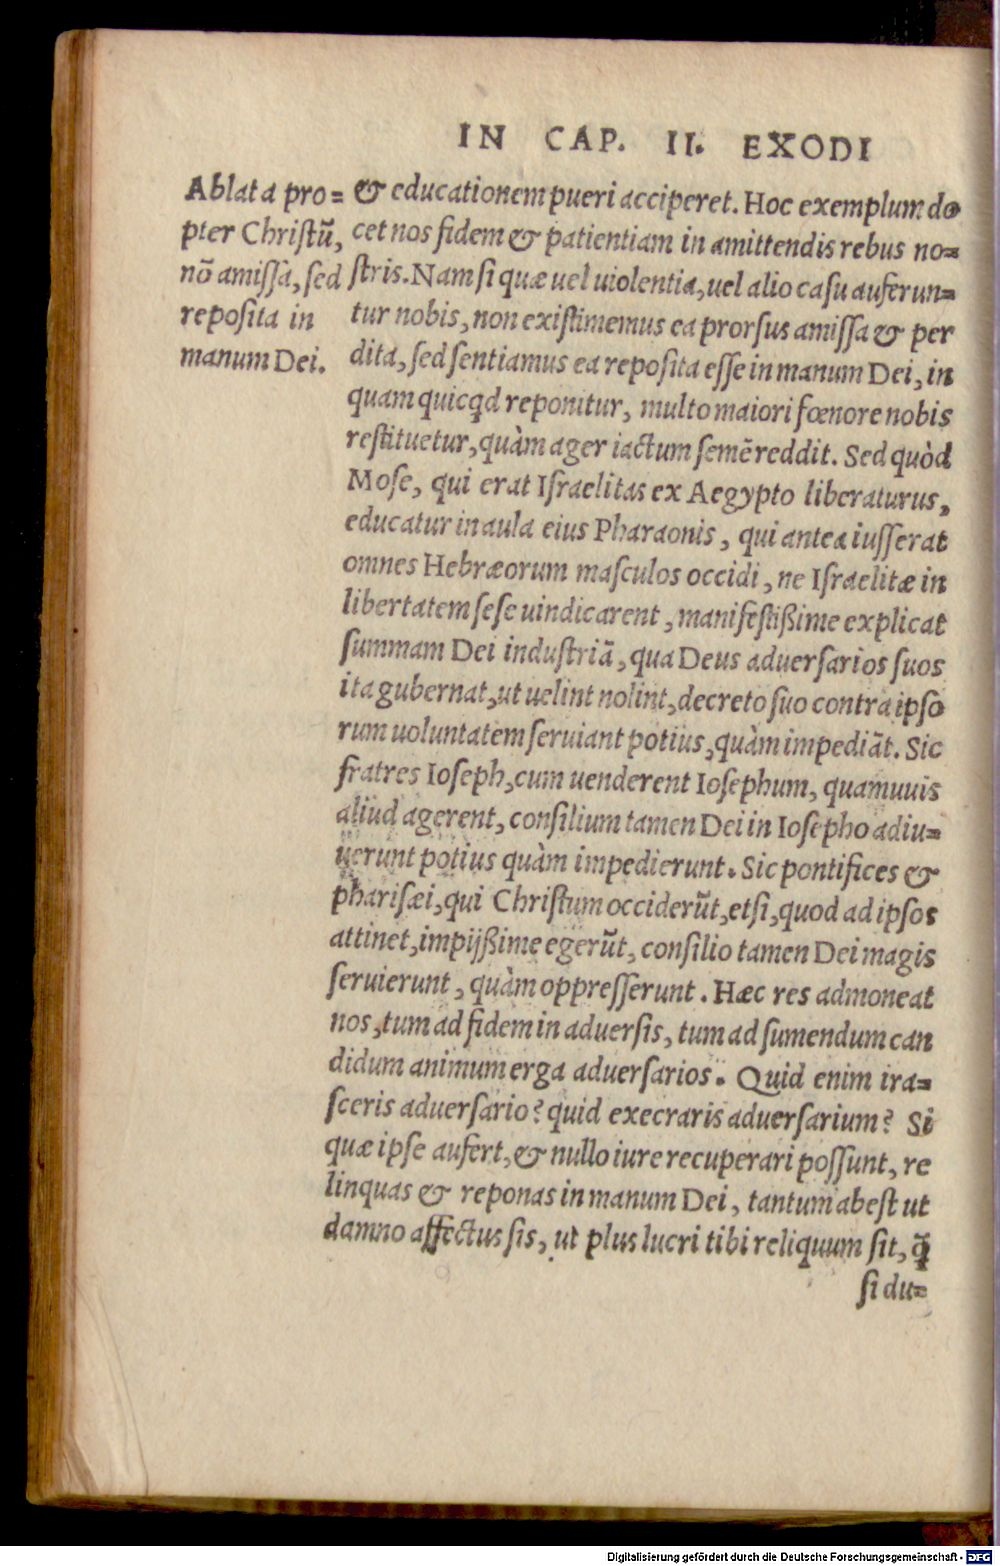 IN CAP. II. EXODI
Ablata pro=
pter Christũ,
nõ amissa, sed
reposita in
manum Dei.
& educationem pueri acciperet. Hoc exemplum do
cet nos fidem & patientiam in amittendis rebus no=
stris. Nam si quæ uel uiolentia, uel alio casu auferun=
tur nobis, non existimemus ea prorsus amissa & per
dita, sed sentiamus ea reposita esse in manum Dei, in
quam quicq̃d reponitur, multo maiori fœnore nobis
restituetur, quàm ager iactum semẽ reddit. Sed quòd
Mose, qui erat Israelitas ex Aegypto liberaturus,
educatur in aula eius Pharaonis, qui antea iusserat
omnes Hebræorum masculos occidi, ne Israelitæ in
libertatem sese uindicarent, manifestißime explicat
summam Dei industriã, qua Deus aduersarios suos
ita gubernat, ut uelint nolint, decreto suo contra ipso
rum uoluntatem seruiant potius, quàm impediãt. Sic
fratres Ioseph, cum uenderent Iosephum, quamuuis
aliud agerent, consilium tamen Dei in Iosepho adiu=
uerunt potius quàm impedierunt. Sic pontifices &
pharisæi, qui Christum occiderũt, etsi, quod ad ipsos
attinet, impijßime egerũt, consilio tamen Dei magis
seruierunt, quàm oppresserunt. Hæc res admoneat
nos, tum ad fidem in aduersis, tum ad sumendum can
didum animum erga aduersarios. Quid enim ira=
sceris aduersario? quid execraris aduersarium? Si
quæ ipse aufert, & nullo iure recuperari possunt, re
linquas & reponas in manum Dei, tantum abest ut
damno affectus sis, ut plus lucri tibi reliquum sit, q̃
si du=
Digitalisierung gefördert durch die Deutsche Forschungsgemeinschaft - DFG